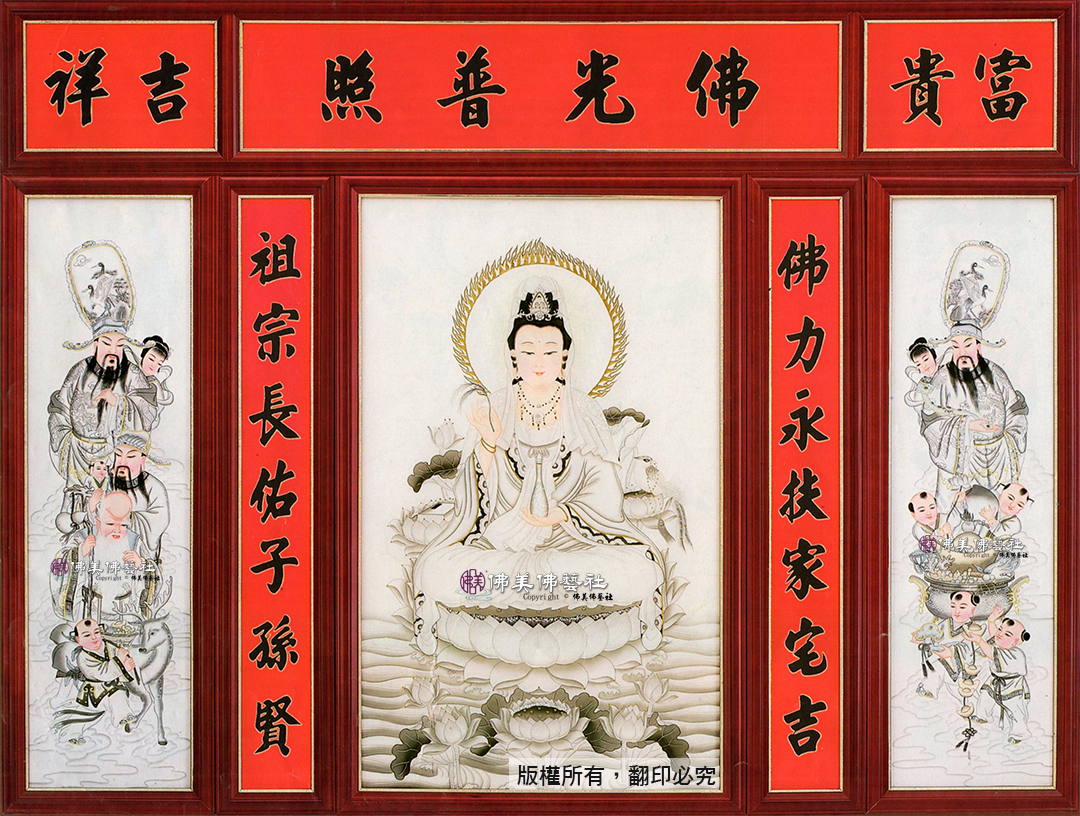 富貴
佛光普照
吉祥
佛力永扶家宅吉
祖宗長佑子孫賢
佛美佛藝社
Copyright © 佛美佛藝社
佛美佛藝社
Copyright © 佛美佛藝社
佛美佛藝社
Copyright © 佛美佛藝社
版權所有，翻印必究